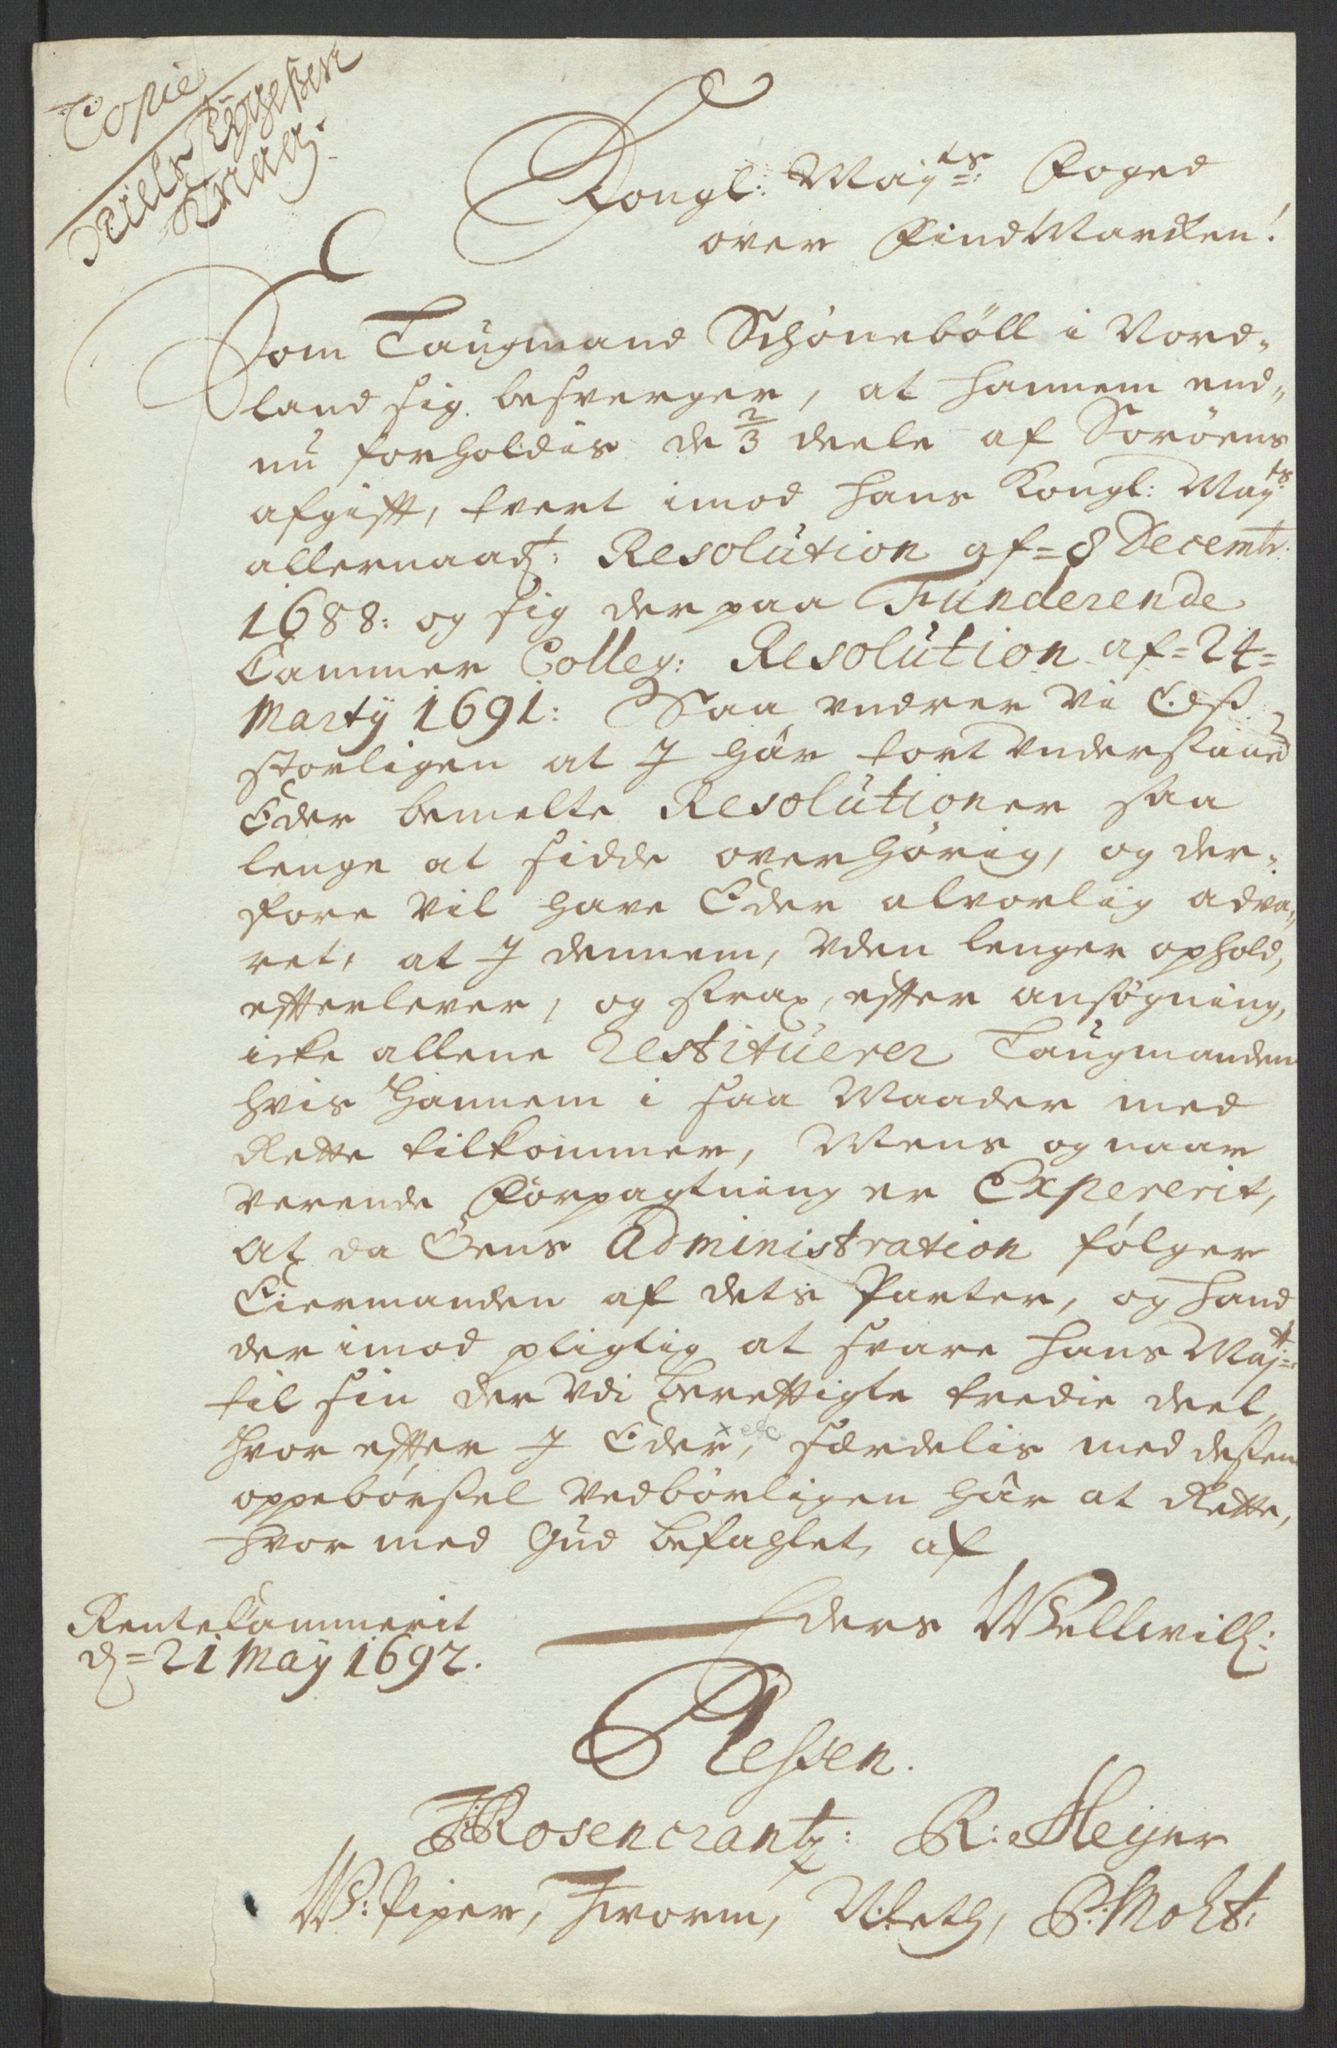 Copie
Niels Tygesen
Knag.
Kongl: Mayts: Foged
over FindMarcken!
Som Laugmand Schönebøll i Nord-
land sig besverger, at hannem end-
nu forholdis de 2/3 deele af Sorøens
afgifft, tvert imod hans Kongl: Mayts:
allernaadt: Resolution af = 8 Decembr:
1688: og sig der paa Funderende
Cammer Colleg: Resolution af = 24 =
Marty 1691: Saa undrer Vi Oss
storligen at J har tort Understaaed
Eder bemelte Resolutioner saa
lenge at sidde overhørig, og der-
fore Vil have Eder alvorlig adva-
ret, at J dennem, Uden lenger ophold,
effterlever, og strax, effter ansøgning,
icke allene restituerer Laugmanden
hvis Hannem i saa Maader med
Rette tilkommer, Mens og naar
verende Forpagtning er Expererit,
At da Øens Administration følger
Eiermanden af dets Parter, og hand
der imod pligtig at svare Hans Maytt:
til sin der Udi berettigte tredie deel,
hvor effter J Eder, særdelis med dessen
oppebørsel Vedbørligen har at Rette,
hvor med Gud befahlet, af
Rentekammerit
d = 21 May 1692.
Eders Wellwill:
Plessen.
JRosencrantz: R: Meyer
W: Piper, Jworm, P: Moht: